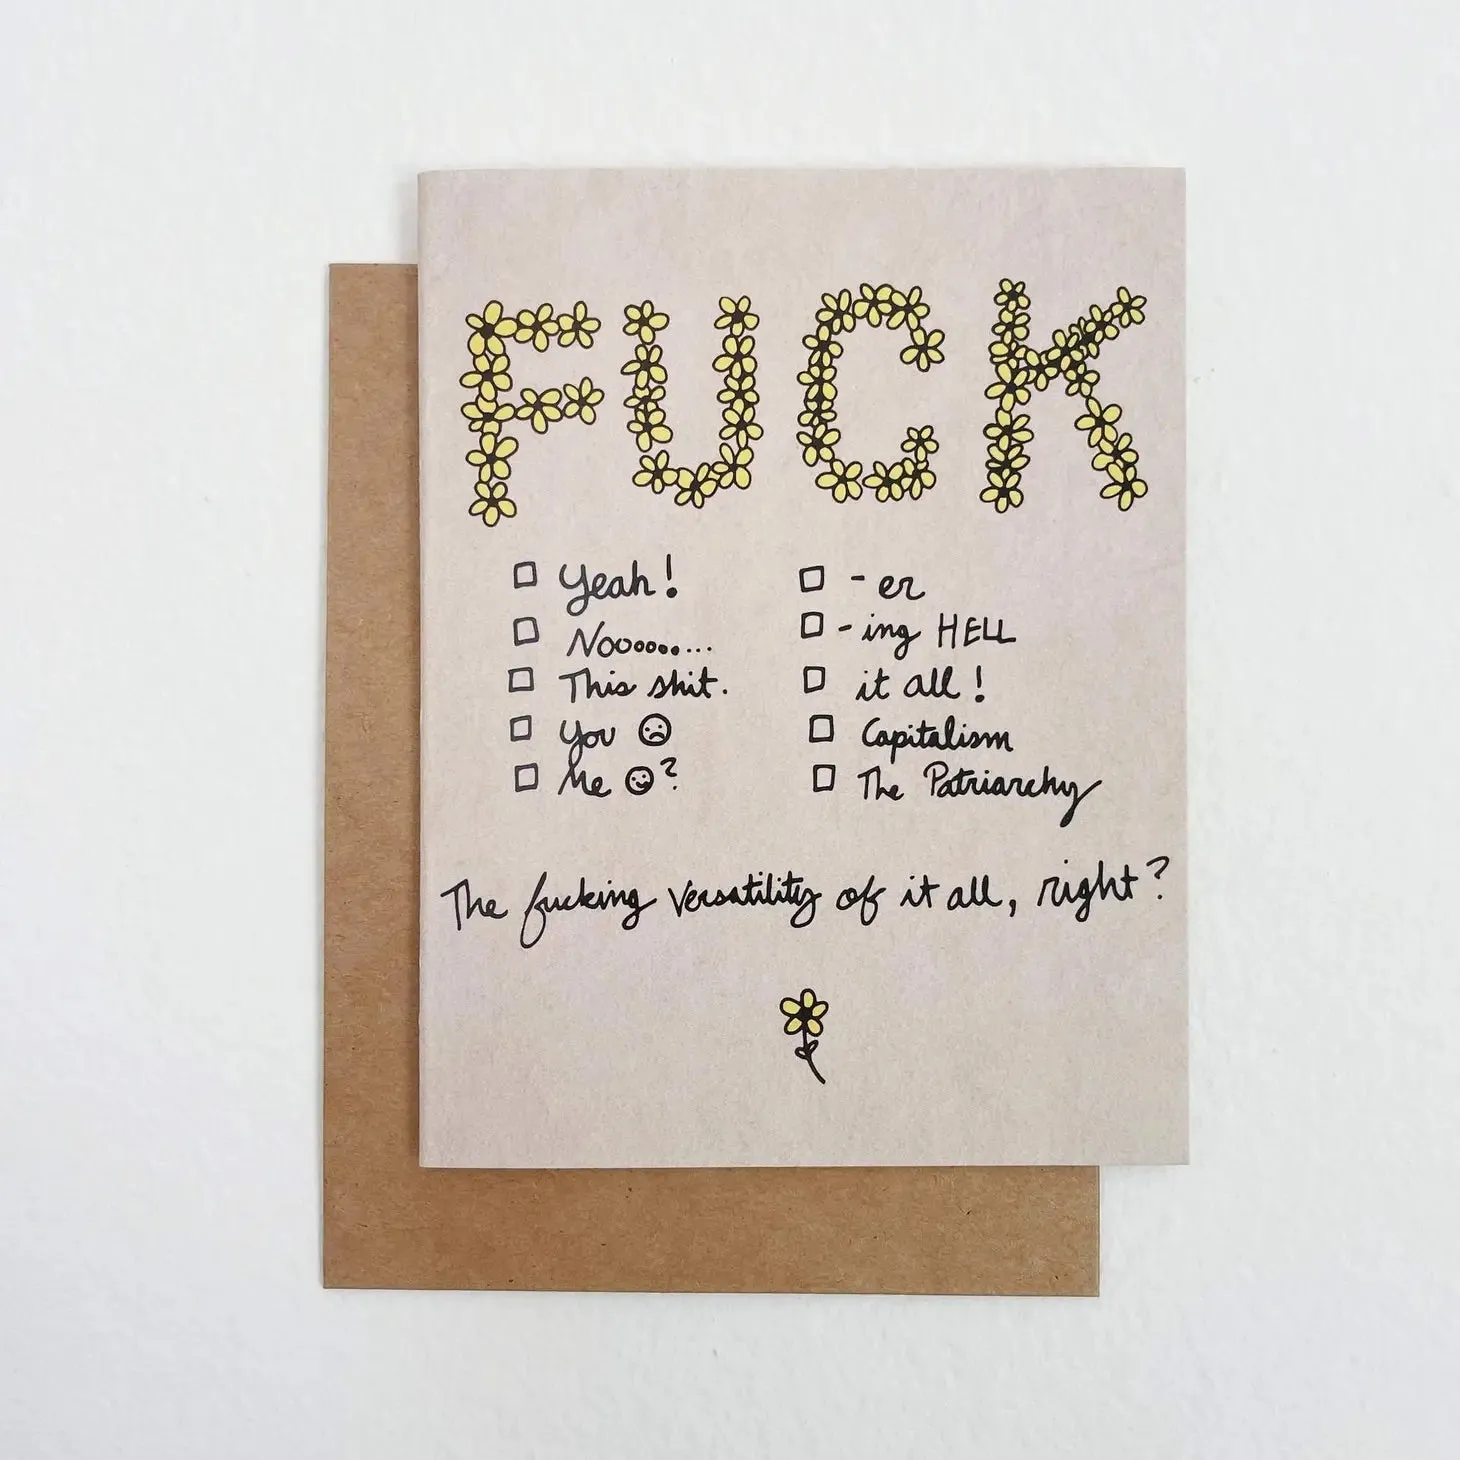 FUCK
Yeah!
Nooooo....
This shit.
You ☹
Me ☺?
-er
-ing HELL
it all!
Capitalism
The Patriarchy
The fucking versatility of it all, right?